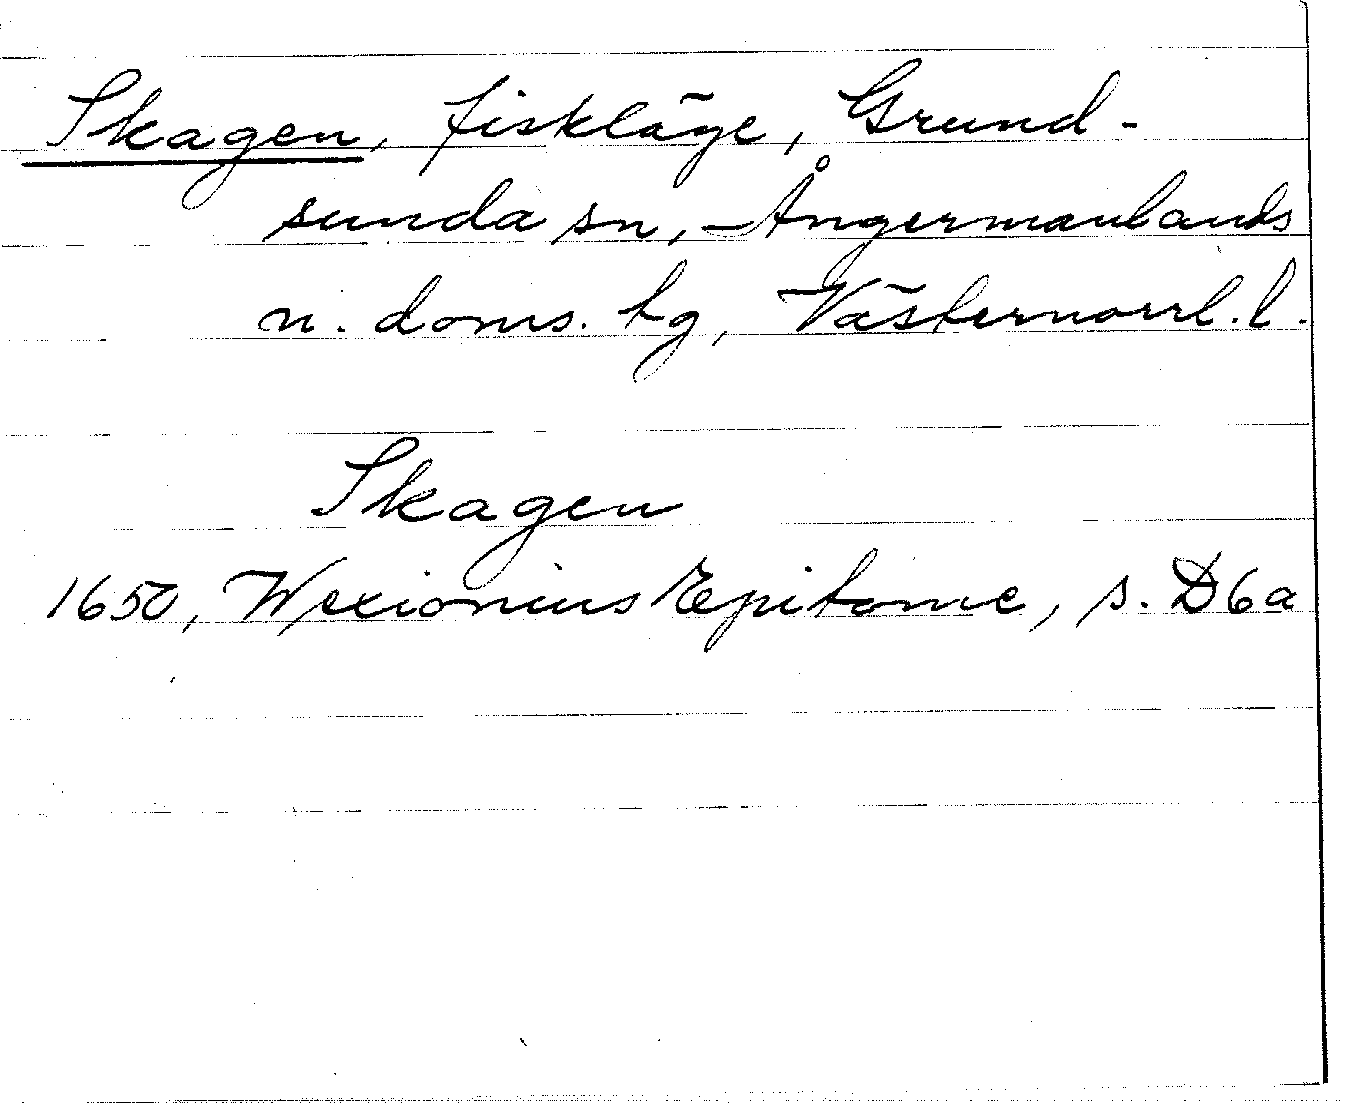 Skagen, fiskläge, Grund-
sunda sn, Ångermanlands
n. doms. tg, Västernorrl. l.
Skagen
1650, Wexionius Epitome, s. D6a